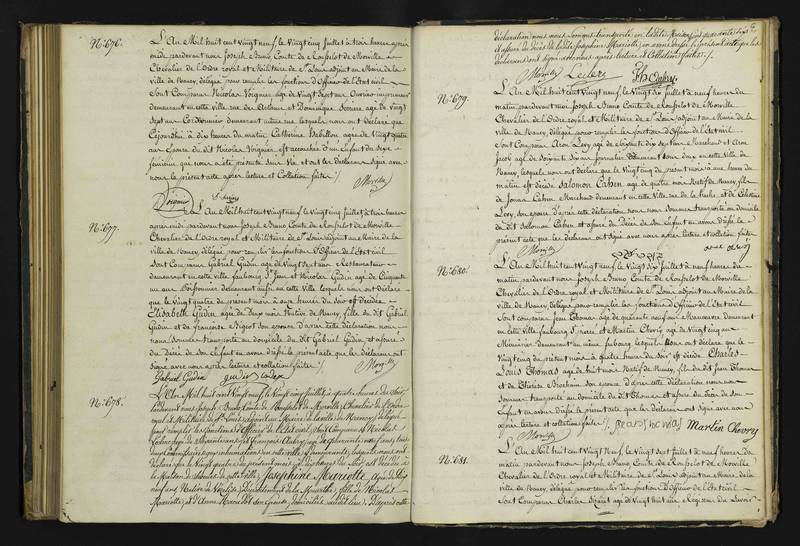 N.° 676.
L'An Mil huit cent Vingt neuf, le Vingt cinq Juillet à trois heures après
midi pardevant nous Joseph Bruno Comte de
Chevalier de l'Ordre royal et Militaire de St. Louis adjoint au Maire de la
ville de Nancy, délégué pour remplir les fonctions d'Officier de l'Etat civil
Sont Comparus Nicolas Voignier âgé de Vingt sept ans Ouvrier imprimeur
demeurant en cette ville rue des et Dominique âgé de Vingt
sept ans Cordonnier demeurant même rue lesquels nous ont déclaré que
Cejourd'hui à dix heures du matin Catherine âgée de Vingt quatre
ans Epouse du dit Nicolas Voignier est accouchée d'un Enfant du Sexe
féminin qui nous a été présenté sans Vie et ont les déclarans signé avec
nous le présent acte après lecture et Collation faite /.
Morville
Voignier
N.° 677.
L'An Mil huit cent Vingt neuf, le Vingt cinq Juillet à trois heures
après midi pardevant nous Joseph Bruno Comte de
Chevalier de l'Ordre royal et Militaire de St. Louis adjoint au Maire de la
ville de Nancy, délégué pour remplir les fonctions d'Officier de l'Etat civil
Sont Comparus Gabriel Gudin âgé de Vingt sept ans
demeurant en cette ville faubourg St. Jean et Nicolas Gudin âgé de Cinquante
un ans demeurant aussi en cette Ville lesquels nous ont déclaré
que le Vingt quatre du présent mois à heures du Soir est décédée
Elisabeth Gudin âgée de Deux mois Native de Nancy, fille du dit Gabriel
Gudin et de Françoise son épouse d'après cette déclaration nous
nous sommes transporté au domicile du dit Gabriel Gudin et assuré
du Décès de cet Enfant au avons dressé le présent acte que les déclarans ont
signé avec nous après lecture et collation faite /.
Morville
Gabriel Gudin
N.° 678.
L'An Mil huit cent Vingt neuf, le Vingt cinq Juillet, à quatre heures du Soir,
pardevant nous Joseph Bruno Comte de Chevalier de l'Ordre
royal et Militaire de St. Louis adjoint au Maire de la ville de Nancy, délégué
pour remplir les fonctions d'Officier de l'Etat civil, Sont Comparus Nicolas
et François Aubry, âgé de
en cette ville, lesquels nous ont
déclaré que le Vingt quatre du présent mois à heures du Soir, est décédée à
la Maison de de cette ville, Josephine Mariotte, âgée de
neuf ans Native de Département de la Meurthe, fille de Nicolas
Mariotte, et d'Anne son Epouse, D'après cette
6
déclaration nous nous sommes transporté en ladite Maison
et assuré du décès de ladite Josephine Mariotte, en avons dressé le présent acte que les
déclarans ont signé avec nous, après lecture et Collation faites /.
Morville Leclerc Aubry
N.° 679.
L'An Mil huit cent Vingt neuf, le Vingt six Juillet à neuf heures du
matin pardevant nous Joseph Bruno Comte de
Chevalier de l'Ordre royal et Militaire de St. Louis adjoint au Maire de la
ville de Nancy, délégué pour remplir les fonctions d'Officier de l'Etat civil
Sont Comparus Aron Levy âgé de Soixante dix sept ans Marchand et Aron
Jacob âgé de Soixante six ans journalier demeurant tous deux en cette Ville de
Nancy, lesquels nous ont déclaré que le Vingt cinq du présent mois à une heure du
matin est décédé Salomon Cahen âgé de quatre mois Natif de Nancy, fils
de Jonas Cahen Marchand demeurant en cette Ville rue de la et de Célestine
Levy, son épouse d'après cette déclaration nous nous sommes transporté au domicile
du dit Salomon Cahen et assuré du Décès de cet Enfant en avons dressé le
présent acte que les déclarans ont signé avec nous après lecture et collation faite
Morville
N.° 680.
L'An Mil huit cent Vingt neuf, le Vingt six Juillet à neuf heures du
matin pardevant nous Joseph Bruno Comte de
Chevalier de l'Ordre royal et Militaire de St. Louis adjoint au Maire de la
ville de Nancy, délégué pour remplir les fonctions d'Officier de l'Etat civil
Sont Comparus Jean Thomas âgé de quarante neuf ans Manoeuvre demeurant
en cette ville faubourg St. Pierre et Martin Chevry âgé de Vingt cinq ans
Menuisier demeurant au même faubourg lesquels nous ont déclaré que le
Vingt cinq du présent mois à quatre heures du Soir est décédé Charles
Louis Thomas âgé de huit mois Natif de Nancy, fils du dit Jean Thomas
et de Thérèse son épouse d'après cette déclaration nous nous
sommes transporté au domicile du dit Thomas et assuré du Décès de cet
Enfant en avons dressé le présent acte que les déclarans ont signé avec nous
après lecture et collation faite /. Martin Chevry
Morville
N.° 681.
L'An Mil huit cent Vingt neuf, le Vingt sept Juillet à neuf heures du
matin pardevant nous Joseph Bruno Comte de
Chevalier de l'Ordre royal et Militaire de St. Louis adjoint au Maire de la
ville de Nancy, délégué pour remplir les fonctions d'Officier de l'Etat civil
Sont Comparus Charles âgé de Vingt huit ans